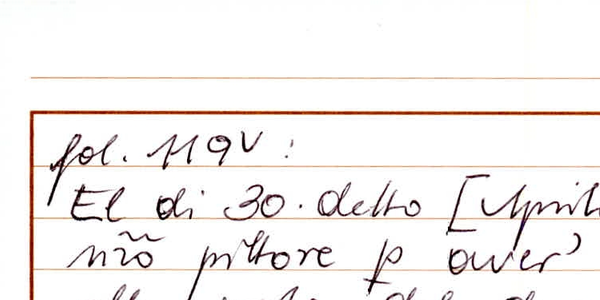 fol. 119v:
El di 30. detto [April
pittore p aver'